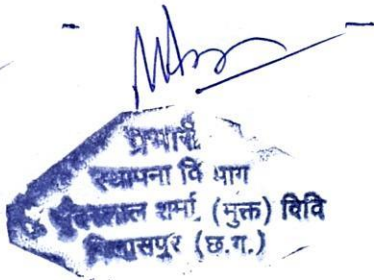 प्रभारी
स्थापना वि भाग
सुंदरलाल शर्मा (मुक्त) विवि
बिलासपुर (छ.ग.)